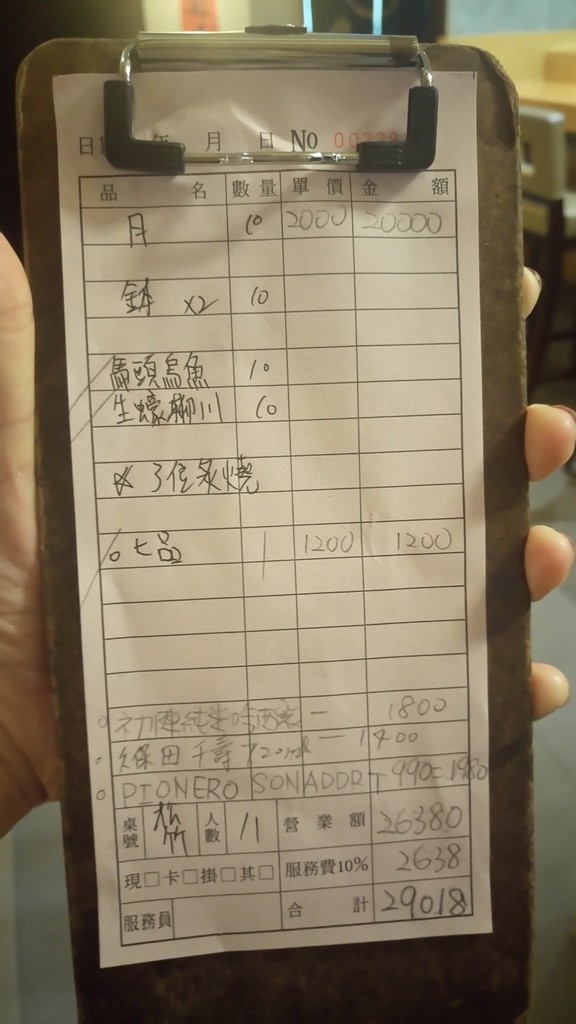 年 月 日 No
品 名 數量 單價 金 額
月 10 2000 20000
X2 10
馬頭烏魚 10
生蠔柳川 10
3位炙燒
七品 1 1200 1200
純米吟釀 一 1800
久保田 千壽 720ml 一 1400
PIONERO SONADDRT 990=1980
桌號 松竹 人數 11 營業額 26380
現□卡□掛□其□ 服務費10% 2638
服務員 合 計 29018